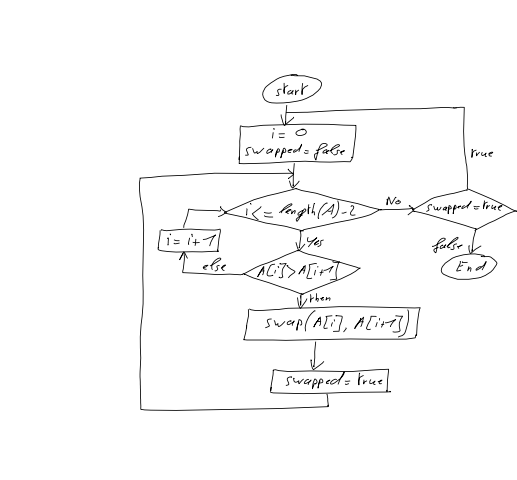 start
i = 0
swapped = false
true
i <= length(A)-2
No
swapped=true
Yes
false
End
i = i+1
else
A[i]>A[i+1]
then
swap(A[i], A[i+1])
swapped = true